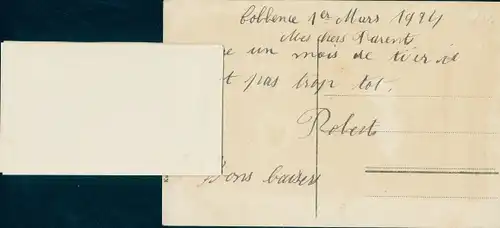 Coblence 1er Mars 1924
Mes chers Parents
re un mois de tiré il
t pas trop tot.
Robert
Bons baisers